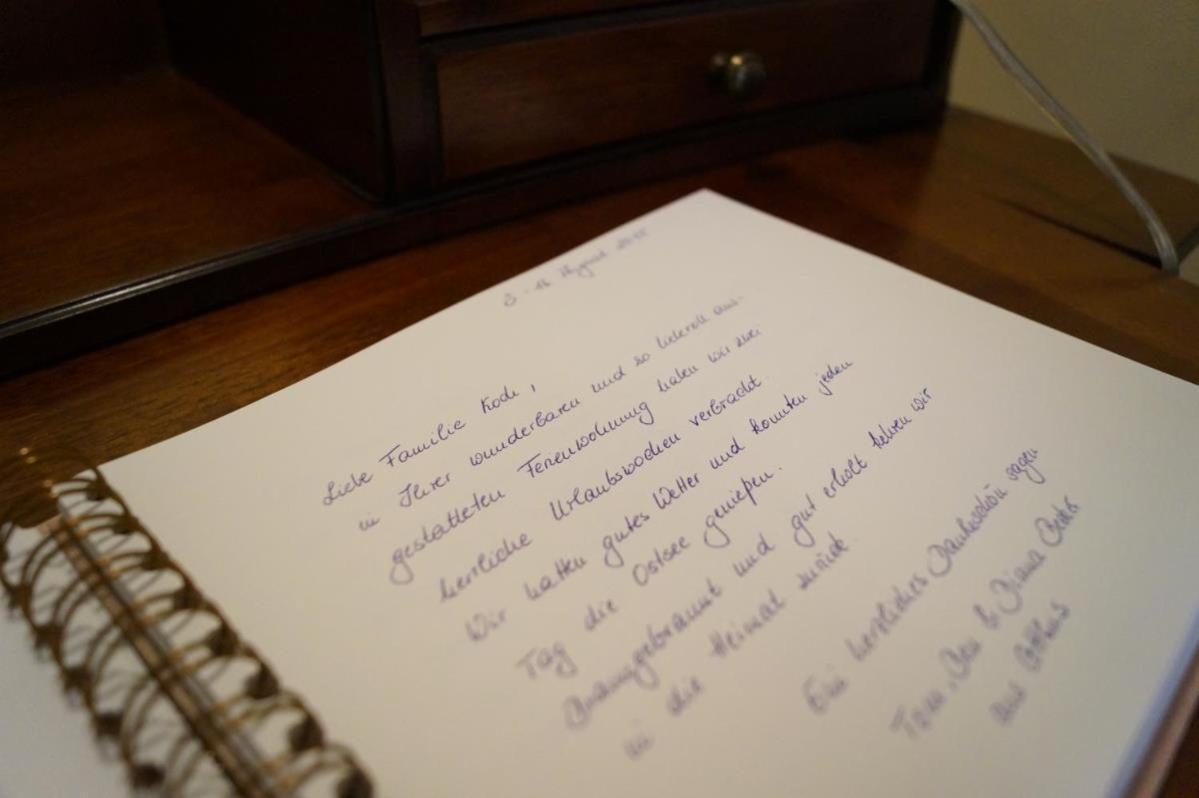 August
Liebe Familie Koch,
in Ihrer wunderbaren und so liebevoll aus-
gestatteten Ferienwohnung haben wir zwei
herrliche Urlaubswochen verbracht.
Wir hatten gutes Wetter und konnten jeden
Tag die Ostsee genießen.
Braungebrannt und gut erholt kehren wir
in die Heimat zurück.
Ein herzliches Dankeschön sagen
Tom, & Diana
aus Cottbus